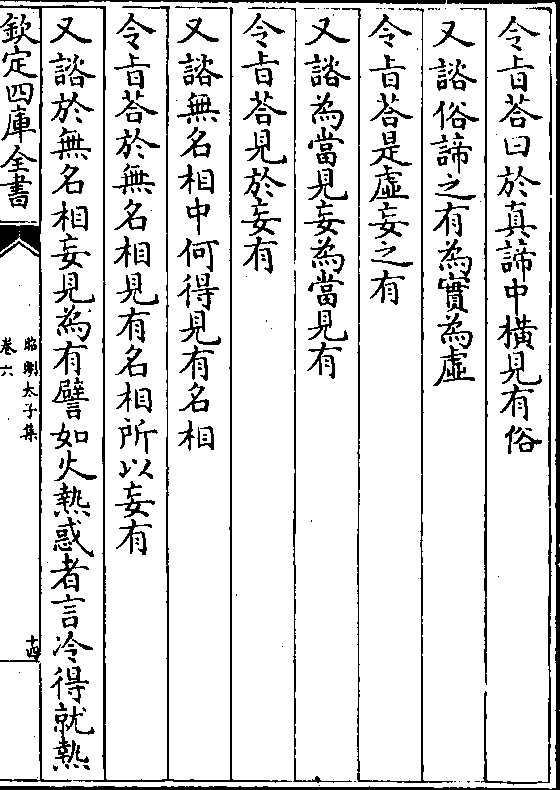 令旨荅曰於真諦中橫見有俗
又諮俗諦之有為實為虛
令旨荅是虛妄之有
又諮為當見妄為當見有
令旨荅見於妄有
又諮無名相中何得見有名相
令旨荅於無名相見有名相所以妄有
又諮於無名相妄見為有譬如火熱惑者言冷得就熱
欽定四庫全書
昭明太子集
卷六
十四